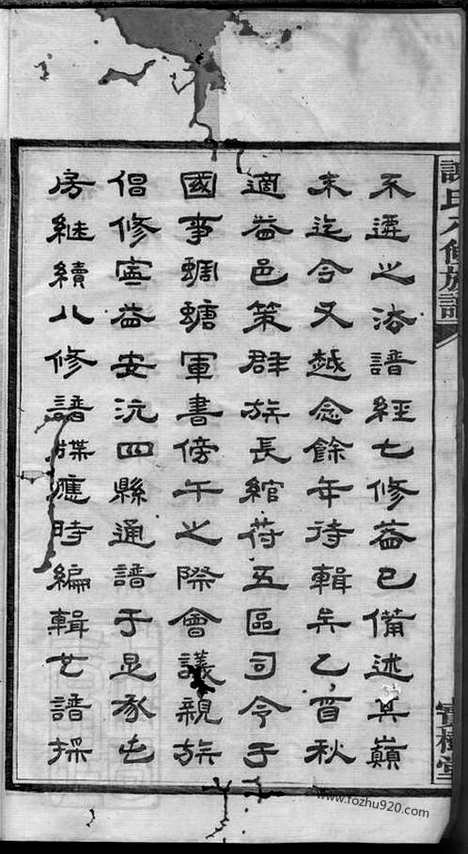 謝氏八修族譜
寶樹堂
不遷之法譜經七修蓋已備述其巔
末迄今又越念餘年待輯矣乙酉秋
適益邑策群族長綰苻五區司令于
國事蜩螗軍書傍午之際會議親族
倡修寧益安沅四縣通譜于是承屯
房繼續八修譜牒應時編輯譜採
www.fozhu920.com